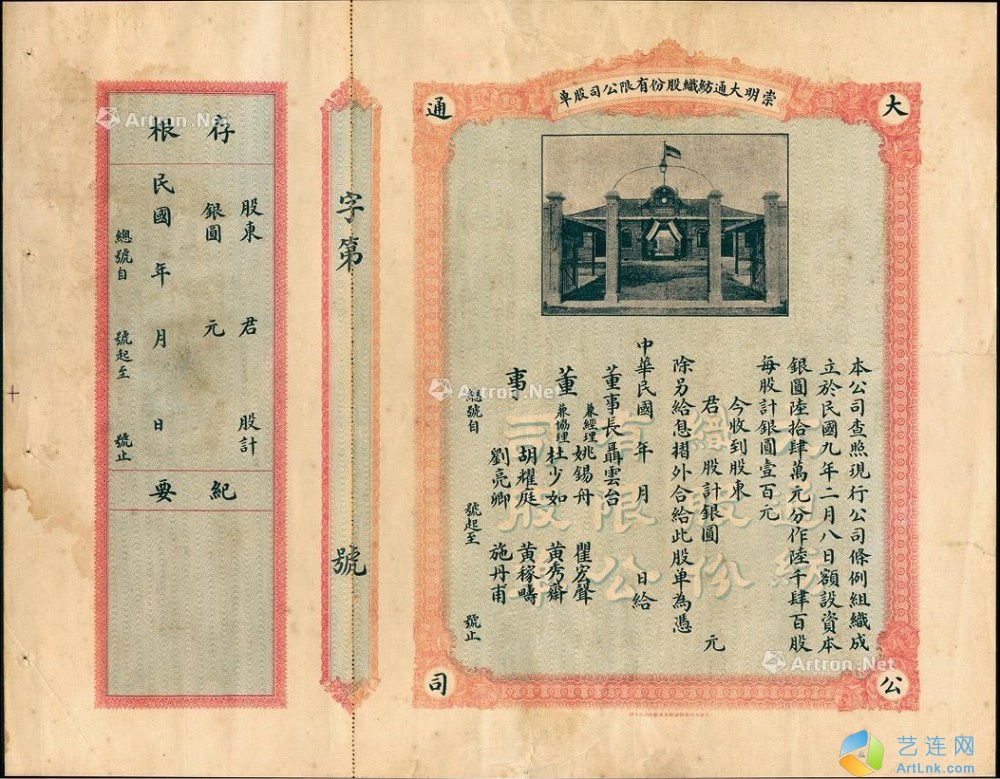 崇明大通紡織股份有限公司股單
大
通
公
司
本公司查照現行公司條例組織成
立於民國九年二月八日額設資本
銀圓陸拾肆萬元分作陸千肆百股
每股計銀圓壹百元
今收到股東
君 股計銀圓 元
除另給息摺外合給此股單為憑
中華民國 年 月 日給
董事長聶雲台
董事
兼經理姚錫舟 瞿宏聲
兼協理杜少如 黃秀齋
胡耀庭 黃稼疇
劉亮卿 施丹甫
總號自 號起至 號止
字第 號
存根
股東 君 股計
銀圓 元
民國 年 月 日
總號自 號起至 號止
紀要
Artron.Net
Artron.Net
Artron.Net
Artron.Net
艺连网
ArtLnk.com